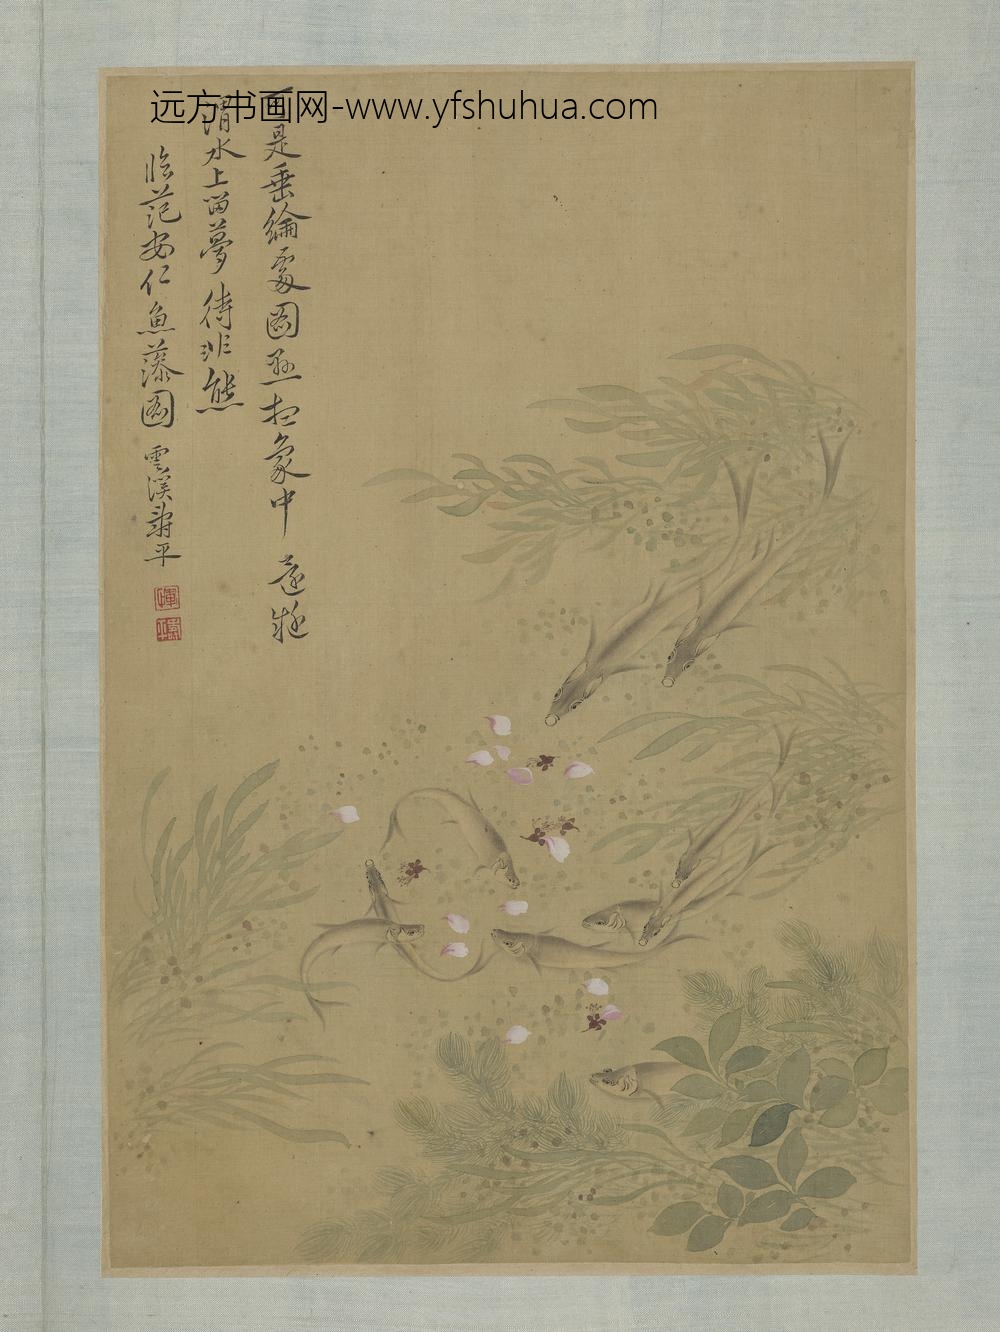 远方书画网-www.yfshuhua.com
是垂綸處圖 象中還疑
渭水上留夢待非熊
臨范安仁魚藻圖 雲溪壽平
壽平